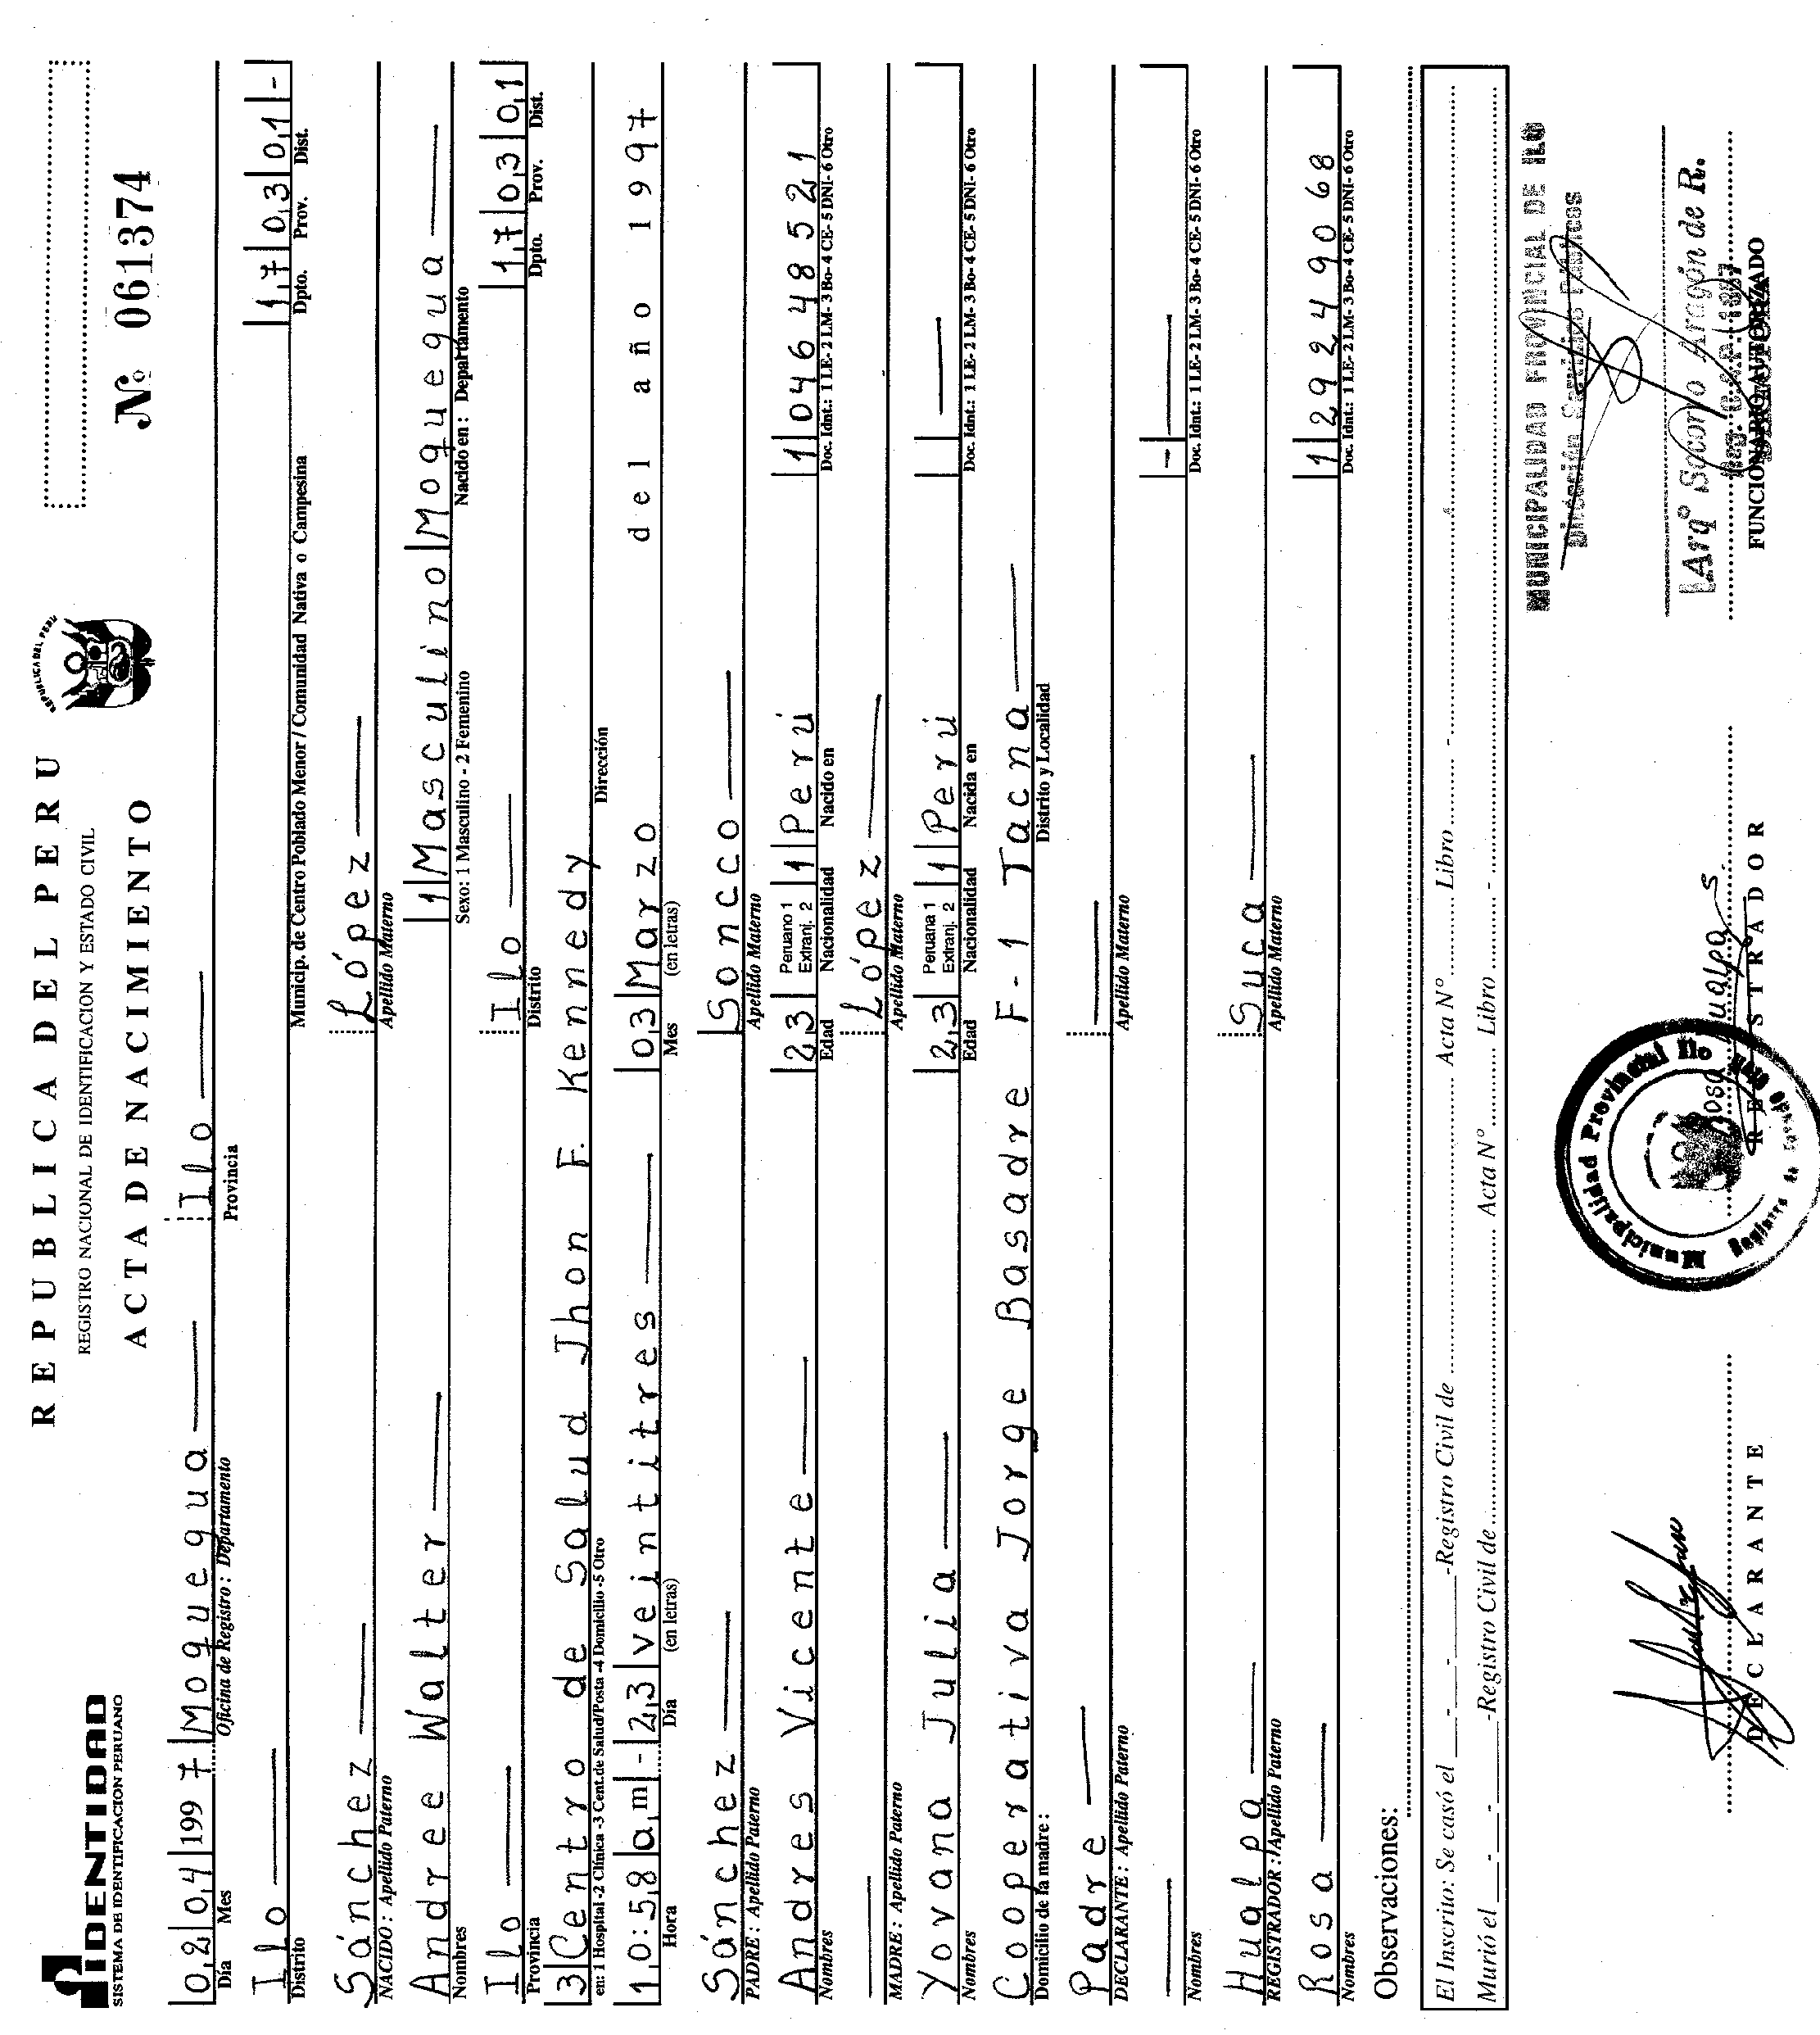 IDENTIDAD
SISTEMA DE IDENTIFICACION PERUANO
REPUBLICA DEL PERU
REGISTRO NACIONAL DE IDENTIFICACION Y ESTADO CIVIL
ACTA DE NACIMIENTO
REPUBLICA DEL PERU
Nº 061374
02 04 1997 Moquegua Ilo
Día Mes Oficina de Registro : Departamento Provincia
Ilo 17 03 01 -
Distrito Municip. de Centro Poblado Menor / Comunidad Nativa o Campesina Dpto. Prov. Dist.
Sánchez López
NACIDO : Apellido Paterno Apellido Materno
Andree Walter 1 Masculino Moquegua
Nombres Sexo: 1 Masculino - 2 Femenino Nacido en : Departamento
Ilo Ilo 17 03 01
Provincia Distrito Dpto. Prov. Dist.
3 Centro de Salud Jhon F. Kennedy
en: 1 Hospital -2 Clínica -3 Cent.de Salud/Posta -4 Domicilio -5 Otro Dirección
10:58 a,m - 23 veintitres 03 Marzo del año 1997
Hora Día (en letras) Mes (en letras)
Sánchez Soncco
PADRE : Apellido Paterno Apellido Materno
Andres Vicente 23 Peruano 1 Extranj. 2 1 Perú 1 04648521
Nombres Edad Nacionalidad Nacido en Doc. Idnt.: 1 LE- 2 LM- 3 Bo- 4 CE- 5 DNI- 6 Otro
López
MADRE : Apellido Paterno Apellido Materno
Yovana Julia 23 Peruana 1 Extranj. 2 1 Perú
Nombres Edad Nacionalidad Nacida en Doc. Idnt.: 1 LE- 2 LM- 3 Bo- 4 CE- 5 DNI- 6 Otro
Cooperativa Jorge Basadre F-1 Tacna
Domicilio de la madre : Distrito y Localidad
Padre
DECLARANTE : Apellido Paterno Apellido Materno
-
Nombres Doc. Idnt.: 1 LE- 2 LM- 3 Bo- 4 CE- 5 DNI- 6 Otro
Hualpa Suca
REGISTRADOR : Apellido Paterno Apellido Materno
Rosa 1 29249068
Nombres Doc. Idnt.: 1 LE- 2 LM- 3 Bo- 4 CE- 5 DNI- 6 Otro
Observaciones:
El Inscrito: Se casó el - - -Registro Civil de Acta Nº Libro -
Murió el - - -Registro Civil de Acta Nº Libro -
MUNICIPALIDAD PROVINCIAL DE ILO
Dirección Servicios Públicos
Municipalidad Provincial Ilo
Rosa Hualpa S.
Arqº Socorro Aragón de R.
Reg. C.A.P. 1887
DECLARANTE REGISTRADOR FUNCIONARIO AUTORIZADO